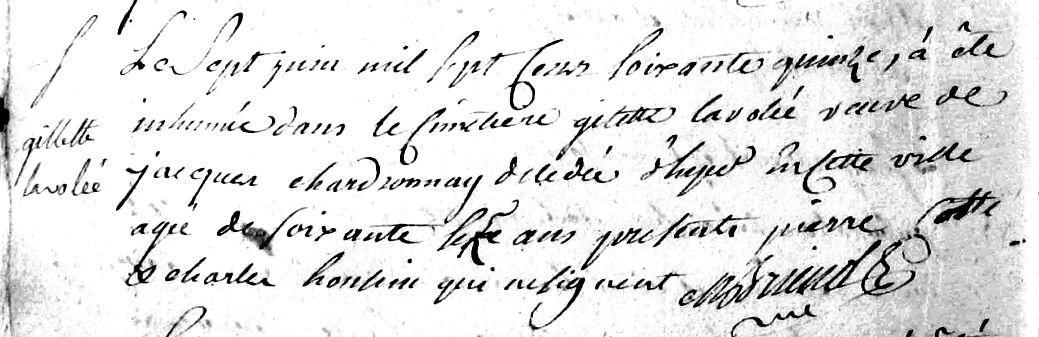 S
gillette
lavolée
Le Sept juin mil sept Cens soixante quinze, à été
inhumée dans le Cimetiere gilette lavolée veuve de
jacques chardronnay décédée d'hyer en Cette ville
agée de soixante ans presents pierre
& charles qui ne signent
vic